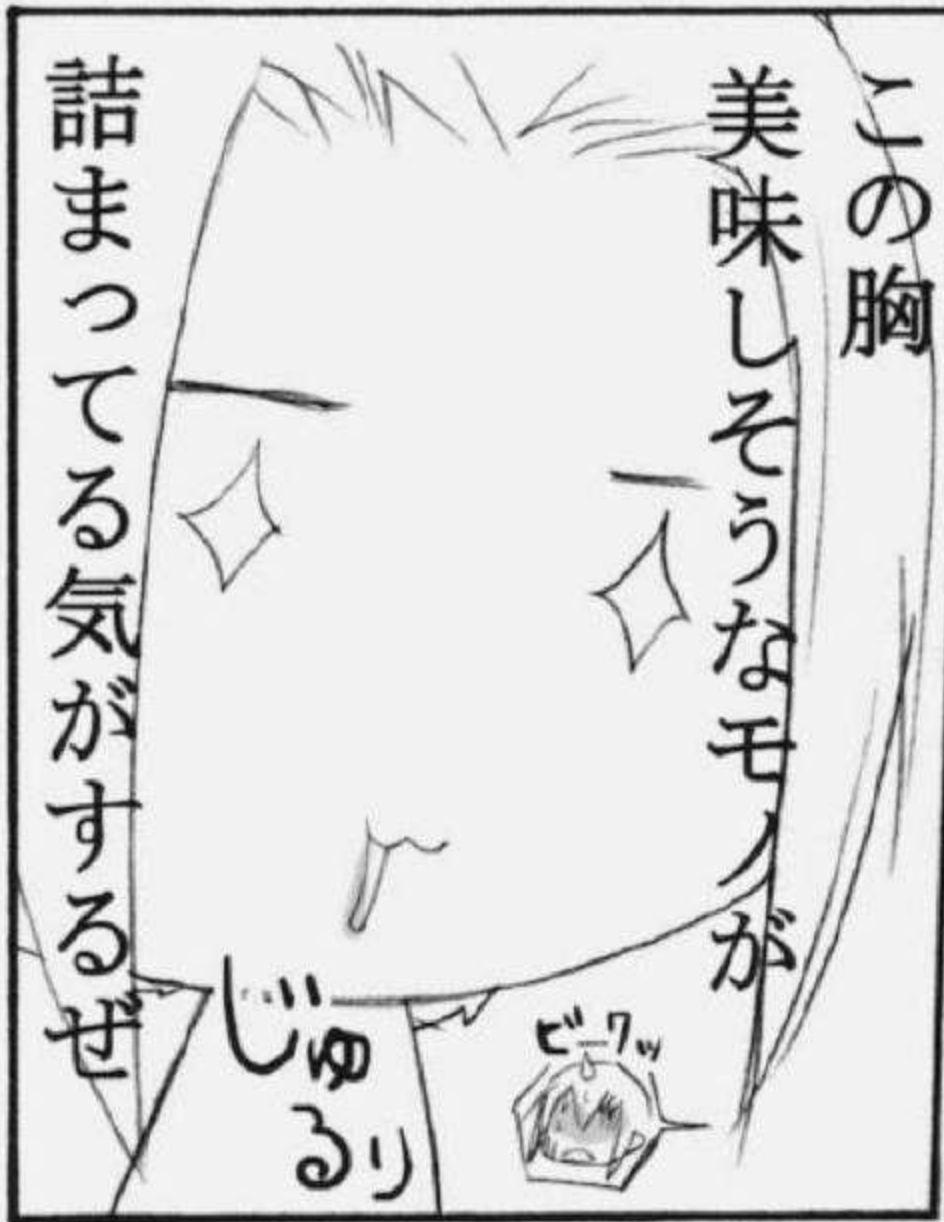 この胸
美味しそうなモノが
詰まってる気がするぜ
じゅるり
ビークッ